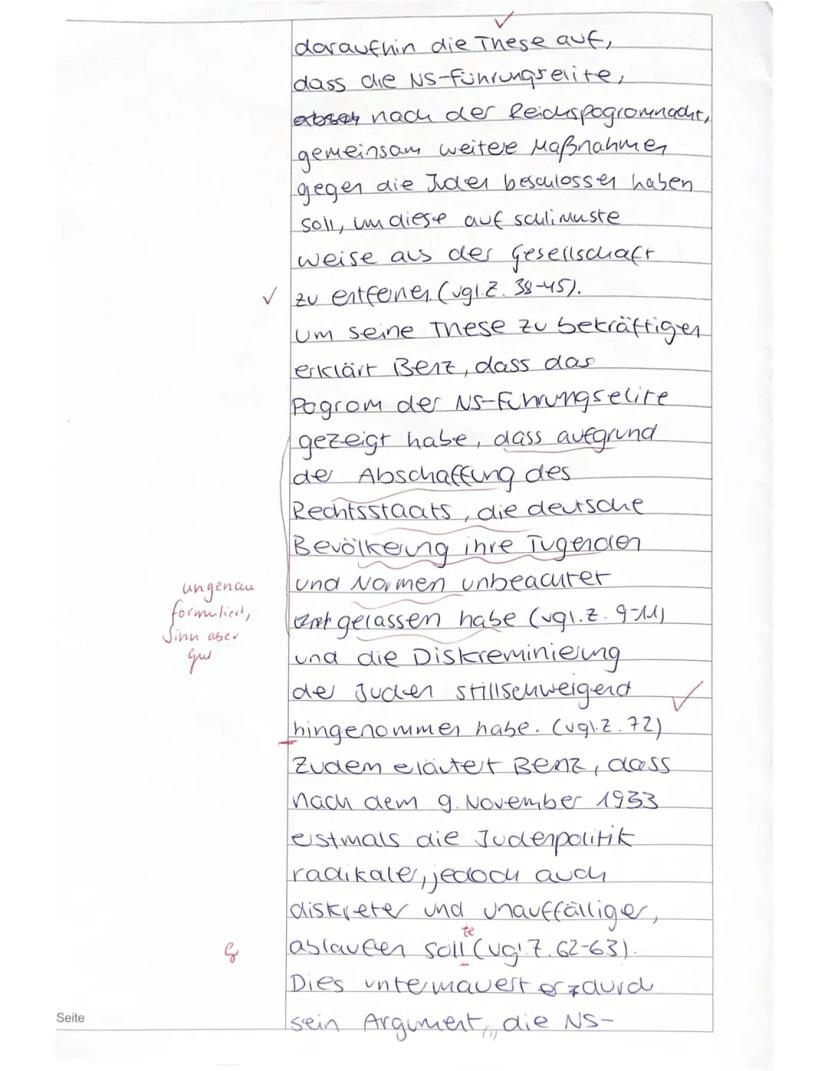 daraufhin die These auf,
dass die NS-Führungselite,
nach der Reichspogromnacht,
gemeinsam weitere Maßnahmen
gegen die Juden beschlossen haben
soll, um diese auf schlimmste
weise aus der Gesellschaft
zu entfernen (vgl. Z. 38-45).
Um seine These zu bekräftigen
erklärt Benz, dass das
Pogrom der NS-Führungselite
gezeigt habe, dass aufgrund
der Abschaffung des
Rechtsstaats, die deutsche
Bevölkerung ihre Tugenden
ungenau
formuliert,
Sinn aber
gut
und Normen unbeachtet
gelassen habe (vgl. Z. 9-11)
und die Diskreminierung
der Juden stillschweigend
hingenommen habe. (vgl. Z. 72)
Zudem eläutert Benz, dass
nach dem 9. November 1933
erstmals die Judenpolitik
radikaler, jedoch auch
diskreter und unauffälliger,
te
ablaufen soll (vgl. Z. 62-63).
G
Dies untermauert er durch
sein Argument, die NS-
Seite